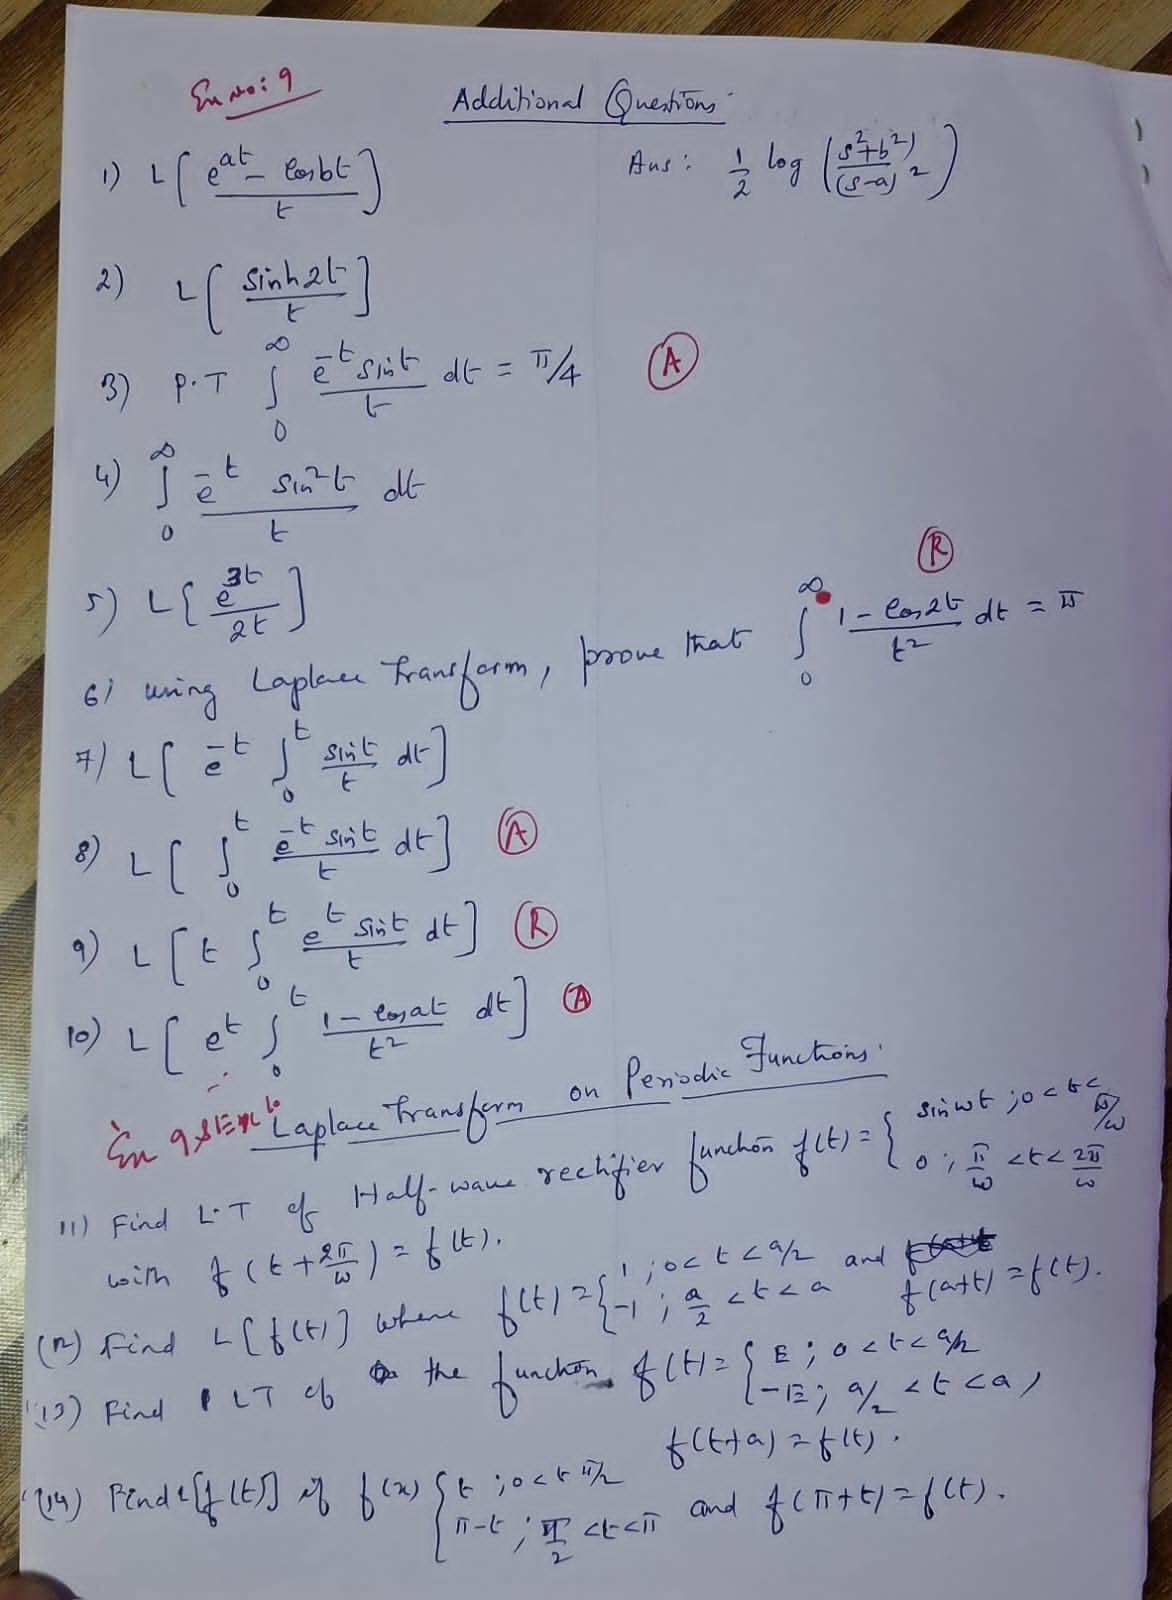 Ex no: 9
Additional Questions
1) L[ (e^{at} - cosbt)/t ]    Ans: 1/2 log ( (s²+b²)/(s-a)² )
2) L[ sinh2t/t ]
3) P.T ∫₀^∞ e^{-t} sint/t dt = π/4 (A)
4) ∫₀^∞ e^{-t} sin²t/t dt
5) L{ e^{3t}/2t ]
6) using Laplace Transform, prove that ∫₀^∞ (1 - cos2t)/t² dt = π (R)
7) L[ e^{-t} ∫₀^t sint/t dt ]
8) L[ ∫₀^t e^{-t} sint/t dt ] (A)
9) L[ t ∫₀^t e^t sint/t dt ] (R)
10) L[ e^t ∫₀^t (1 - cosat)/t² dt ] (A)
Laplace Transform on Periodic Functions.
11) Find L.T of Half-wave rectifier function f(t) = { sinωt ; 0<t<π/ω
0 ; π/ω <t< 2π/ω
with f(t + 2π/ω) = f(t).
(12) Find L[f(t)] where f(t) = { 1 ; 0<t<a/2
-1 ; a/2 <t<a and f(a+t) = f(t).
(13) Find LT of the function f(t) = { E ; 0<t<a/2
-E ; a/2 <t<a,
f(t+a) = f(t).
(14) Find L[f(t)] if f(x) { t ; 0<t π/2
π-t ; π/2 <t<π and f(π+t) = f(t).